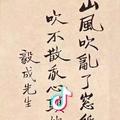 山風吹亂了窓紙
吹不散我心
毅成先生